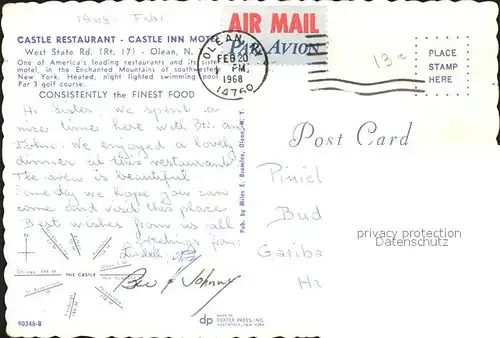 1968 Feb
CASTLE RESTAURANT - CASTLE INN MOTEL
West State Rd. (Rt. 17) - Olean, N.
One of America's leading restaurants and its sister
motel, in the Enchanted Mountains of southwestern
New York. Heated, night lighted swimming pool
Par 3 golf course.
CONSISTENTLY the FINEST FOOD
AIR MAIL
PAR AVION
OLEAN, N.
FEB 20
PM
1968
14760
13
PLACE
STAMP
HERE
Hi Sister. We spent a
nice time here with Bev. and
John. We enjoyed a lovely
dinner at this restaurant
The area is beautiful
Someday we hope you can
come and visit this place
Best wishes from us all
Greetings from
Bev & Johnny
Pub. by Miles E. Bromley, Olean, N. Y.
Post Card
Piniel
Bud
Galiba
Hz
privacy protection
Datenschutz
N
THE CASTLE
90346-B
dp
MADE BY
DEXTER PRESS, INC.
WEST NYACK, NEW YORK